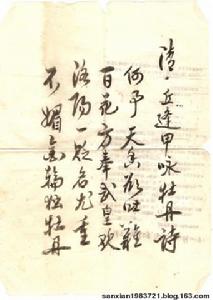 清·丘逢甲咏牡丹詩
何事天香欲吐難
百花方奉武皇歡
洛陽一貶名尤重
不媚金輪独牡丹
sanxian1983721.blog.163.com